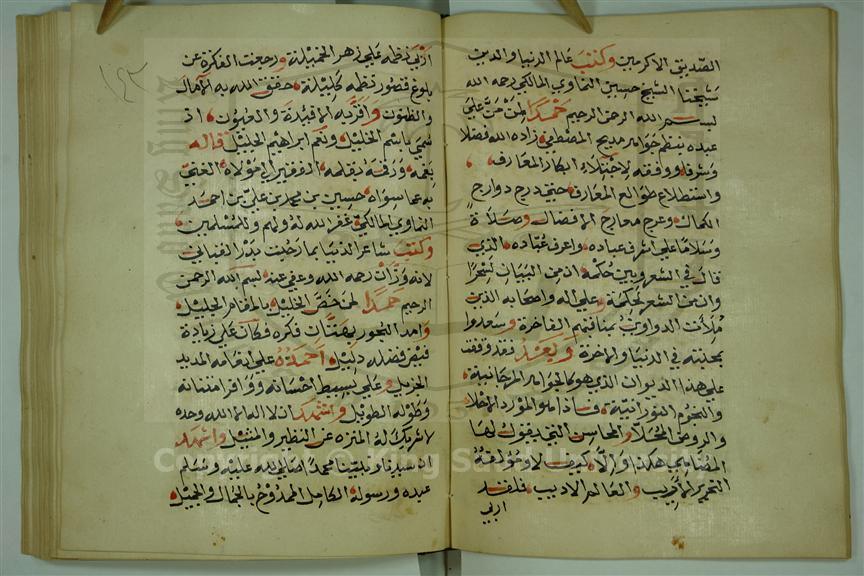 الصديق الاكرمين وكتب عالم الدنيا والدين
شيخنا الشيخ حسين النماوي المالكي رحمه الله
بسم الله الرحمن الرحيم حمدا لمن منّ على
عبده بنظم جواهر مديح المصطفى زاده الله فضلا
وشرفا ووفقه لاجتلاء ابكار المعارف
واستطلاع طوالع المعارف حتى درج دوارج
الكمال وعرج معارج الافضال وصلاة
وسلاما على اشرف عباده واعرف عبّاده الذي
قال في الشعر وبين حكمه ان من البيان لسحرا
وان من الشعر لحكمة وعلى اله واصحابه الذين
ملأت الدواوين بمناقبهم الفاخرة وسعدوا
بمحبته في الدنيا والاخرة وبعد فقد وقفت
على هذا الديوان الذي هو كالجواهر المرجانية
والنجوم النورانية فاذا هو المورد الاحلا
والروض المحلا والمحاسن التي يقول لها
المضاهي هكذا والا كيف لا ومؤلفه
النحرير الاريب والعالم الاديب فلقد
اربى
١٤٣
اربى نظمه على زهر الخميلة ورجعت الفكرة عن
بلوغ قصور نظمه كليلة حقق الله به الامال
والظنون واقر به الافئدة والعيون اذ
سمي باسم الخليل ونعم ابراهيم الخليل قاله
بفمه ورقمه بقلمه الفقير الى مولاه الغني
به عما سواه حسين بن محمد بن علي بن احمد
النماوي المالكي غفر الله له ولهم وللمسلمين
وكتب شاعر الدنيا بما رحبت بدر المعاني
لانه وزان رحمه الله وعفى عنه بسم الله الرحمن
الرحيم حمدا لمن خص الخليل بالمقام الجليل
وامد البحور فكان على زيادة
فيض فضله دليل احمده على انعامه المديد
الجزيل وعلى بسيط احسانه ووافر امتنانه
وطوله الطويل واشهد ان لا اله الا الله وحده
لا شريك له المنزه عن النظير والمثيل واشهد
ان سيدنا ونبينا محمدا صلى الله عليه وسلم
عبده ورسوله الكامل الممدوح بالجمال والجميل
Copyright © King Saud University